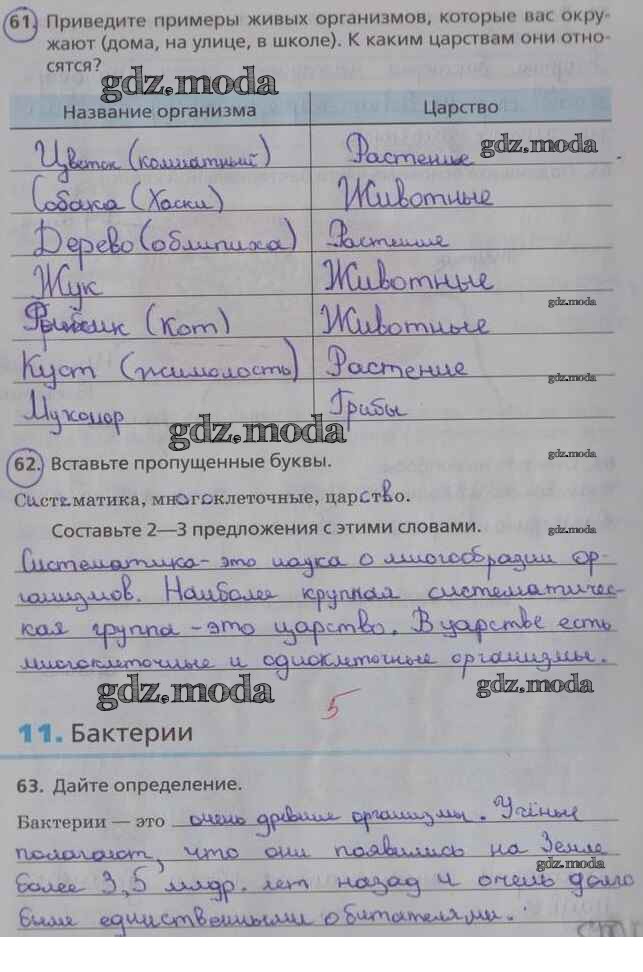 61. Приведите примеры живых организмов, которые вас окру-
жают (дома, на улице, в школе). К каким царствам они отно-
сятся?
gdz.moda
Название организма Царство
Цветок (комнатный) Растение gdz.moda
Собака (Хаски) Животные
Дерево (облипиха) Растение
Жук Животные
gdz.moda
(Кот) Животные
Куст (жимолость) Растение
gdz.moda
Мухомор Грибы
gdz.moda
62. Вставьте пропущенные буквы.
gdz.moda
Систематика, многоклеточные, царство.
Составьте 2—3 предложения с этими словами.
gdz.moda
Систематика - это наука о многообразии ор-
ганизмов. Наиболее крупная систематичес-
кая группа - это царство. В царстве есть
многоклеточные и одноклеточные организмы.
gdz.moda gdz.moda
5
11. Бактерии
63. Дайте определение.
Бактерии — это очень древние организмы. Учёные
полагают, что они появились на Земле
gdz.moda
более 3,5 млдр. лет назад и очень долго
были единственными обитателями.